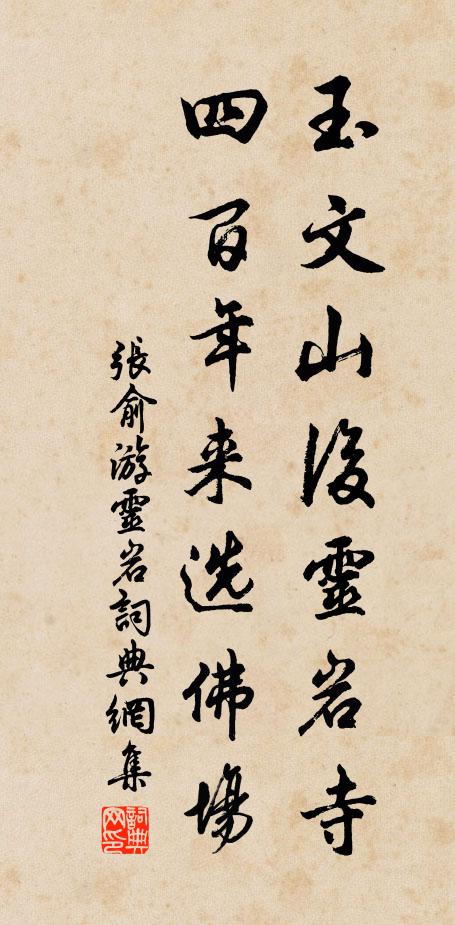 玉文山後靈岩寺
四百年来选佛場
張俞游靈岩詞典網集
詞典网印